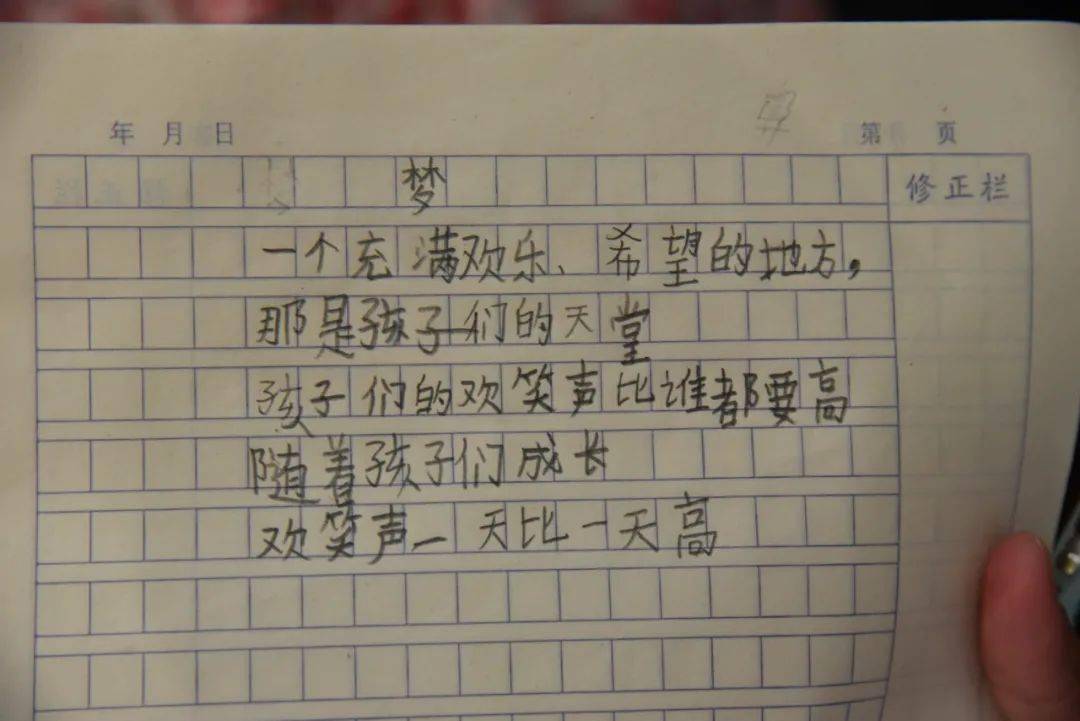 年 月 日 第 页
梦
修正栏
一个充满欢乐、希望的地方，
那是孩子们的天堂
孩子们的欢笑声比谁都要高
随着孩子们成长
欢笑声一天比一天高